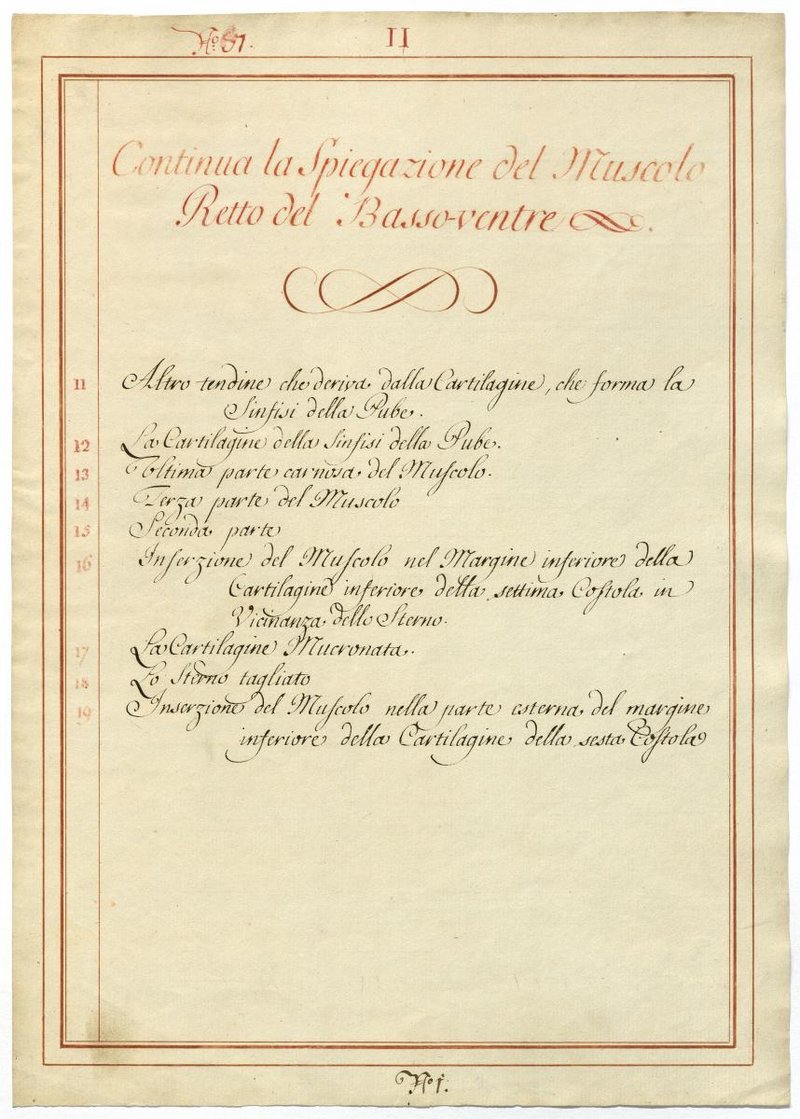 No: 87.
II
Continua la Spiegazione del Muscolo
Retto del Basso-ventre.
11 Altro tendine che deriva dalla Cartilagine, che forma la
Sinfisi della Pube.
12 La Cartilagine della Sinfisi della Pube.
13 Ultima parte carnosa del Muscolo.
14 Terza parte del Muscolo
15 Seconda parte
16 Inserzione del Muscolo nel Margine inferiore della
Cartilagine inferiore della settima Costola in
Vicinanza dello Sterno.
17 La Cartilagine Mucronata.
18 Lo Sterno tagliato
19 Inserzione del Muscolo nella parte esterna del margine
inferiore della Cartilagine della sesta Costola
No 1.